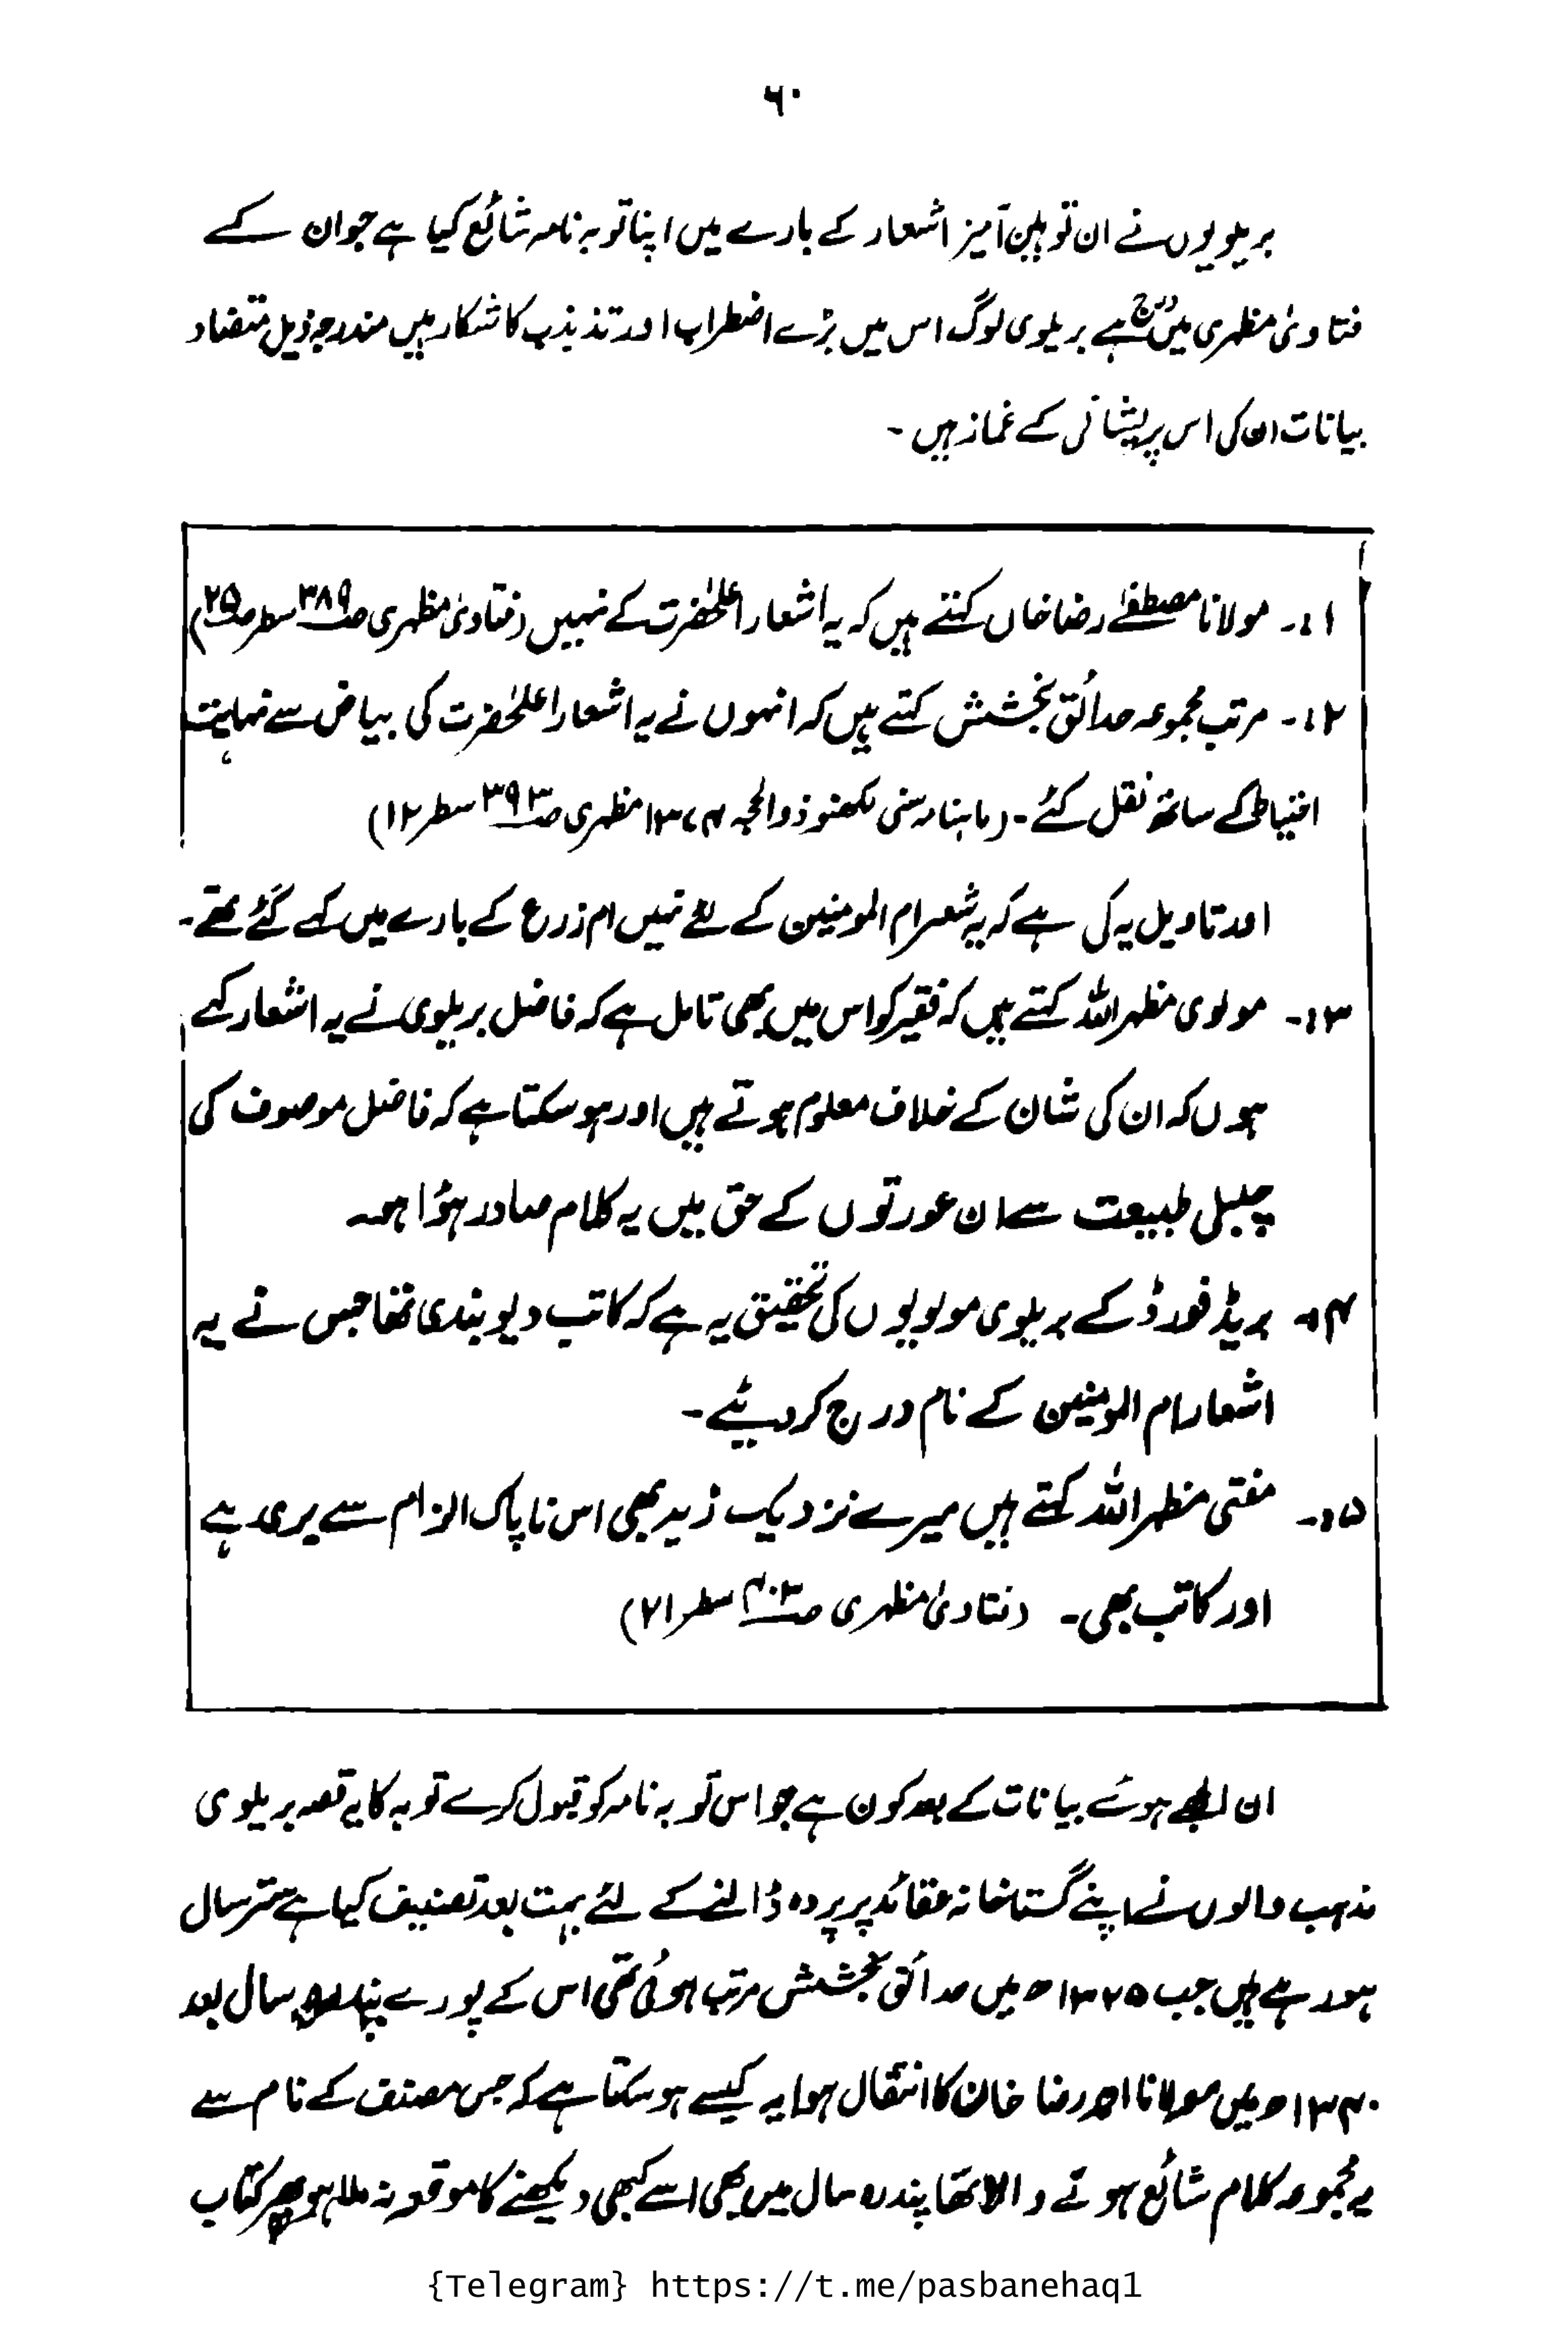 ۶۰
بریلویوں نے ان توہین آمیز اشعار کے بارے میں اپنا توبہ نامہ شائع کیا ہے جو ان کے
فتاویٰ مظہری میں درج ہے بریلوی لوگ اس میں بڑے اضطراب اور تذبذب کا شکار ہیں مندرجہ ذیل متضاد
بیانات ان کی اس پریشانی کے غماز ہیں ۔
۱:۔ مولانا مصطفےٰ رضا خاں کہتے ہیں کہ یہ اشعار اعلحضرت کے نہیں (فتاویٰ مظہری صـ۳۸۹ سطر صـ۲۵)
۲:۔ مرتب مجموعہ حدائق بخشش کہتے ہیں کہ انہوں نے یہ اشعار اعلحضرت کی بیاض سے نہایت
احتیاط کے ساتھ نقل کئے ۔ (ماہنامہ سنی لکھنو ذوالحجہ ۱۳۷۴ مظہری صـ۳۹۳ سطر ۱۲)
اور تاویل یہ کی ہے کہ یہ شعر ام المومنین کے لئے نہیں ام زرع کے بارے میں کہے گئے تھے۔
۳:۔ مولوی مظہر اللہ کہتے ہیں کہ فقیر کو اس میں بھی تامل ہے کہ فاضل بریلوی نے یہ اشعار کہے
ہوں کہ ان کی شان کے خلاف معلوم ہوتے ہیں اور ہو سکتا ہے کہ فاضل موصوف کی
چلبلی طبیعت سے ان عورتوں کے حق میں یہ کلام صادر ہؤا ہو۔
۴: بریڈ فورڈ کے بریلوی مولویوں کی تحقیق یہ ہے کہ کاتب دیوبندی تھا جس نے یہ
اشعار ام المومنین کے نام درج کر دیئے ۔
۵:۔ مفتی مظہر اللہ کہتے ہیں میرے نزدیک زید بھی اس ناپاک الزام سے بری ہے
اور کاتب بھی۔ (فتاویٰ مظہری صـ۴۰۳ سطر ۲۱)
ان الجھے ہوئے بیانات کے بعد کون ہے جو اس توبہ نامہ کو قبول کرے توبہ کا یہ قصہ بریلوی
مذہب والوں نے اپنے گستاخانہ عقائد پر پردہ ڈالنے کے لئے بہت بعد تصنیف کیا ہے ستر سال
ہو رہے ہیں جب ۱۳۲۵ھ میں حدائق بخشش مرتب ہوئی تھی اس کے پورے پندرہ سال بعد
۱۳۴۰ھ میں مولانا احمد رضا خان کا انتقال ہوا یہ کیسے ہو سکتا ہے کہ جس مصنف کے نام سے
یہ مجموعہ کلام شائع ہونے والا تھا پندرہ سال میں بھی اسے کبھی دیکھنے کا موقعہ نہ ملا ہو پھر کتاب
{Telegram} https://t.me/pasbanehaq1